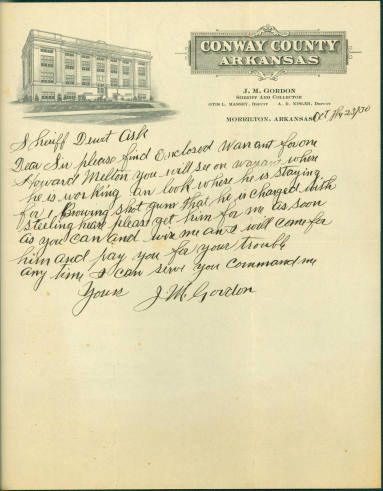 CONWAY COUNTY
ARKANSAS
J. M. GORDON
SHERIFF AND COLLECTOR
OTIS L. MASSEY, DEPUTY A. D. NISLER, DEPUTY
MORRILTON, ARKANSAS, Oct
Sheriff Dewit Ark
Dear Sir please find Enclosed Warant for
Howard Melton you will see on warant where
he is working an look where he is staying
for 1 Browing shot gun that he is charged with
stealing heare please get him for me as soon
as you can and wire me and will come for
him and pay you for your trouble
any time I can serve you command me
Yours J M Gordon